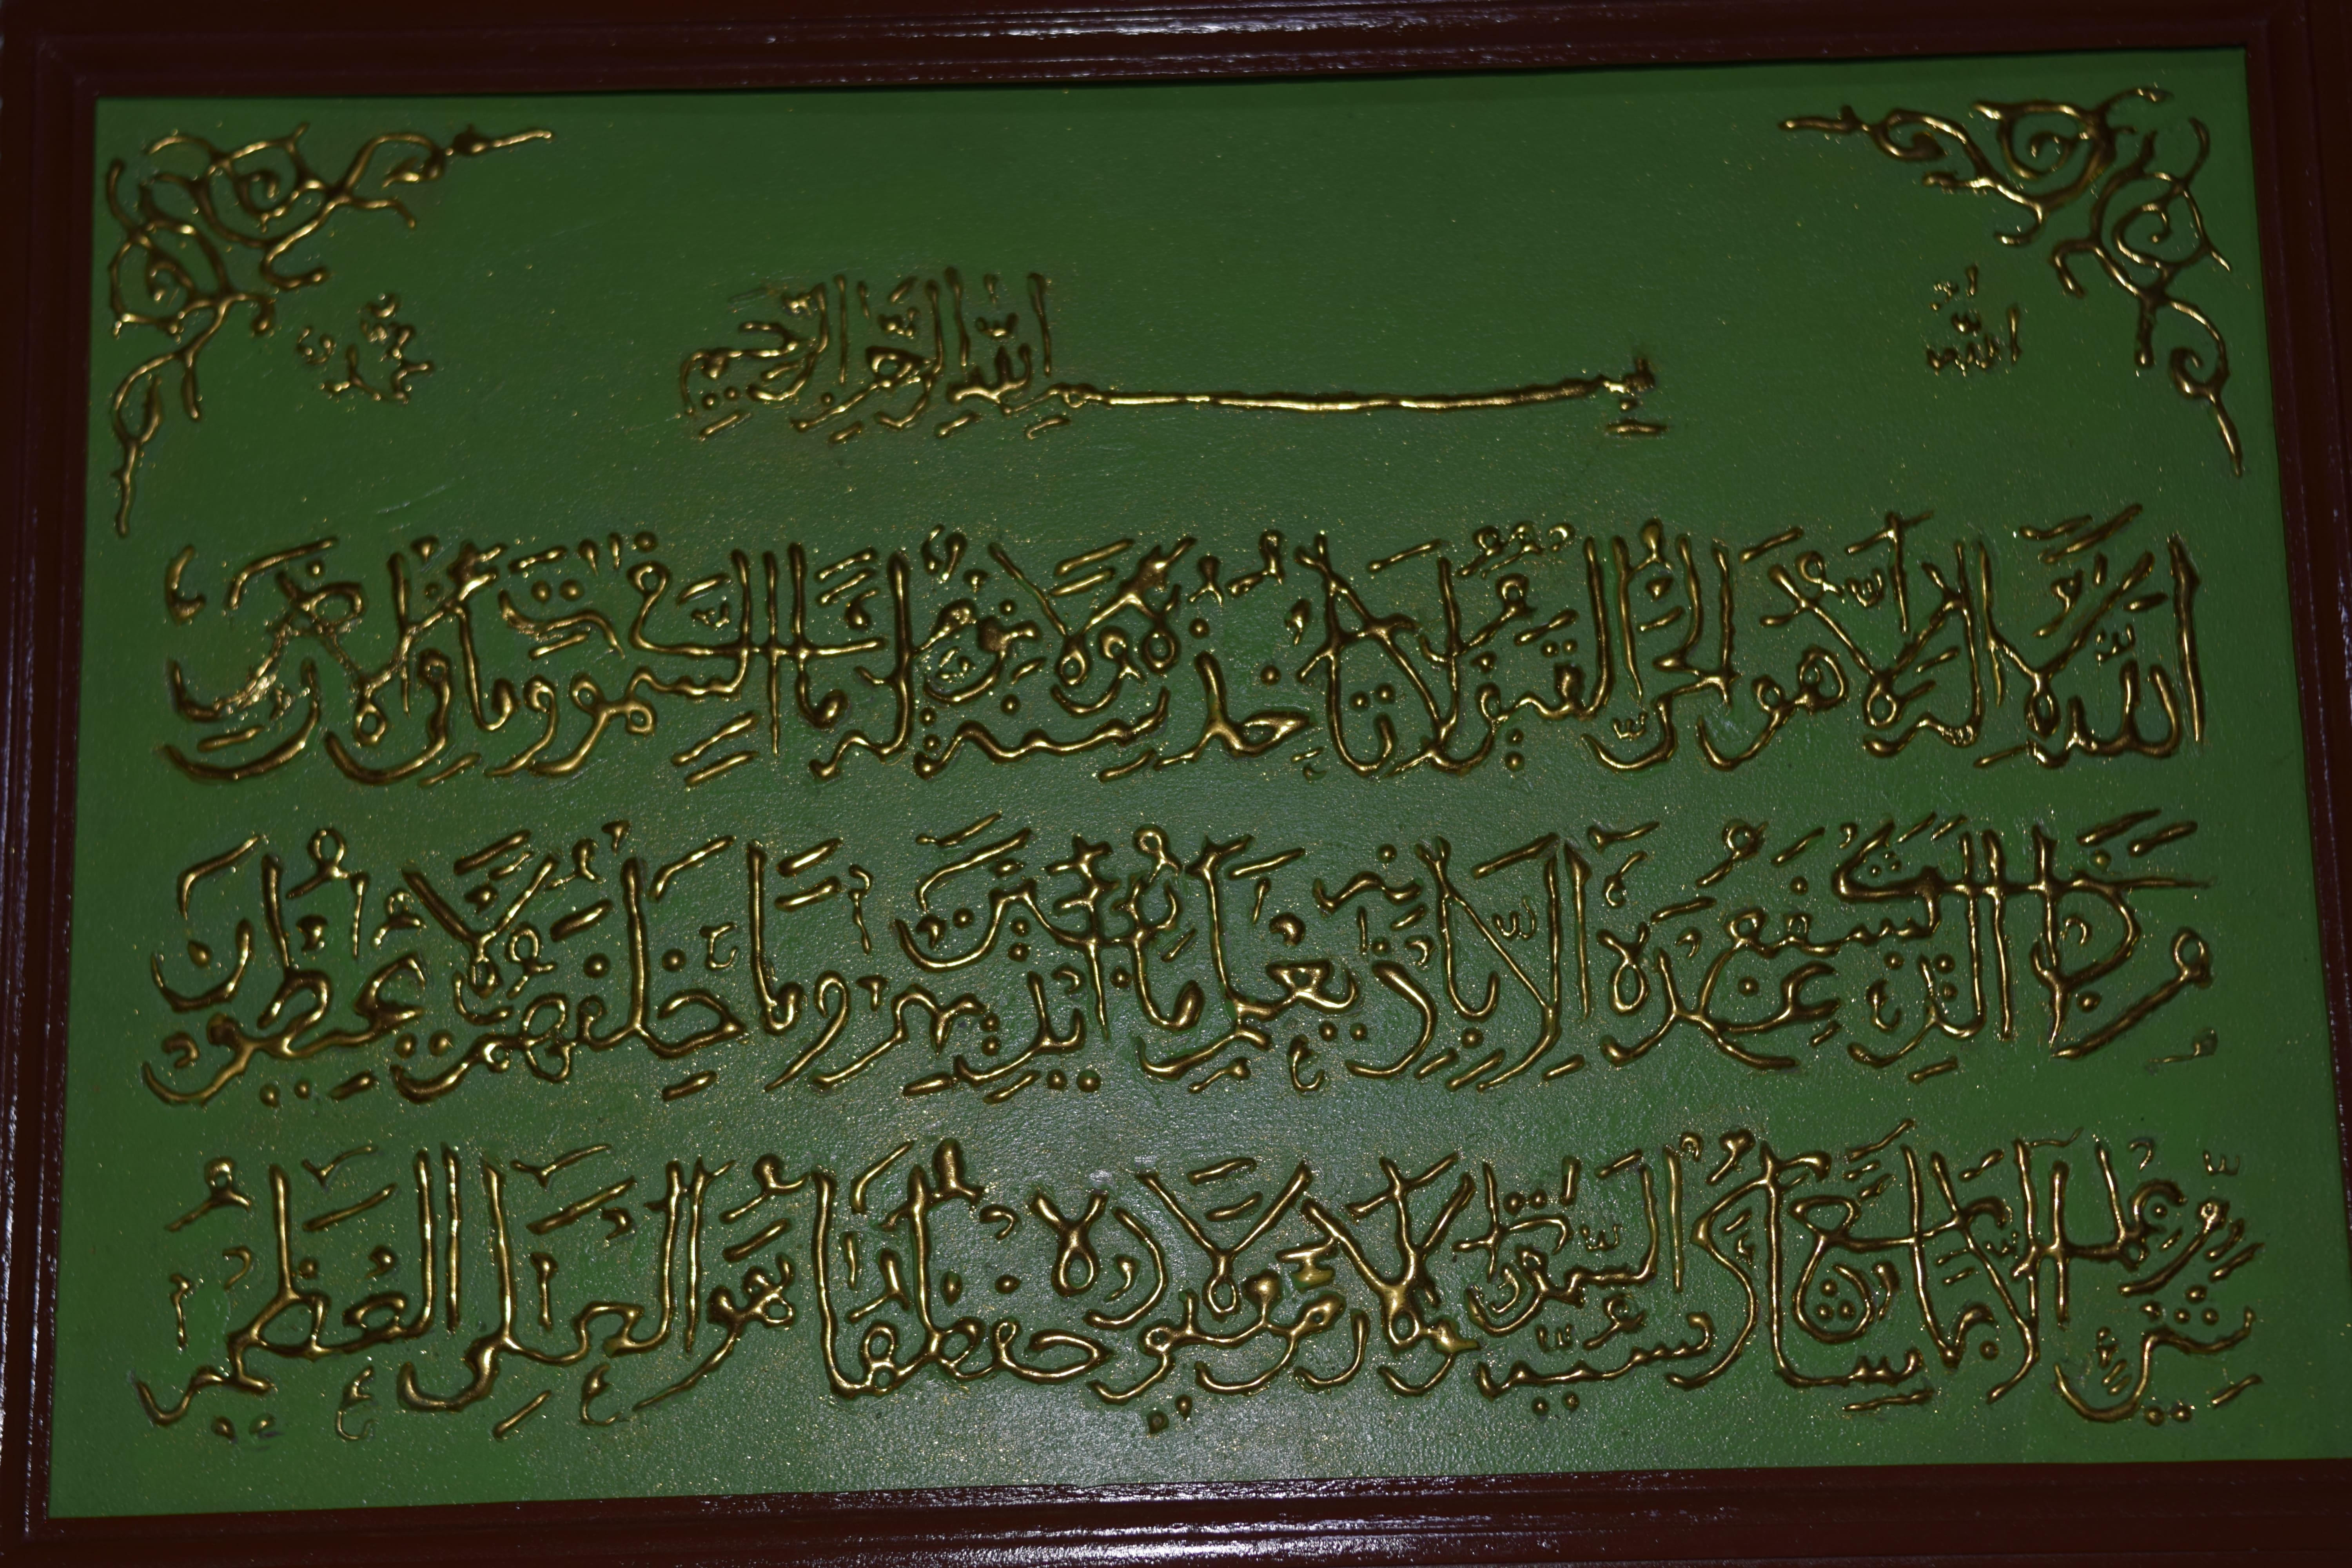 الله
بِسْمِ اللهِ الرَّحْمٰنِ الرَّحِيْمِ
محمد
اَللّٰهُ لَا اِلٰهَ اِلَّا هُوَ الْحَيُّ الْقَيُّوْمُ لَا تَأْخُذُهُ سِنَةٌ وَلَا نَوْمٌ لَهُ مَا فِي السَّمٰوٰتِ وَمَا فِي الْاَرْضِ
مَنْ ذَا الَّذِيْ يَشْفَعُ عِنْدَهُ اِلَّا بِاِذْنِهِ يَعْلَمُ مَا بَيْنَ اَيْدِيْهِمْ وَمَا خَلْفَهُمْ وَلَا يُحِيْطُوْنَ
بِشَيْءٍ مِنْ عِلْمِهِ اِلَّا بِمَا شَاءَ وَسِعَ كُرْسِيُّهُ السَّمٰوٰتِ وَالْاَرْضَ وَلَا يَئُوْدُهُ حِفْظُهُمَا وَهُوَ الْعَلِيُّ الْعَظِيْمُ